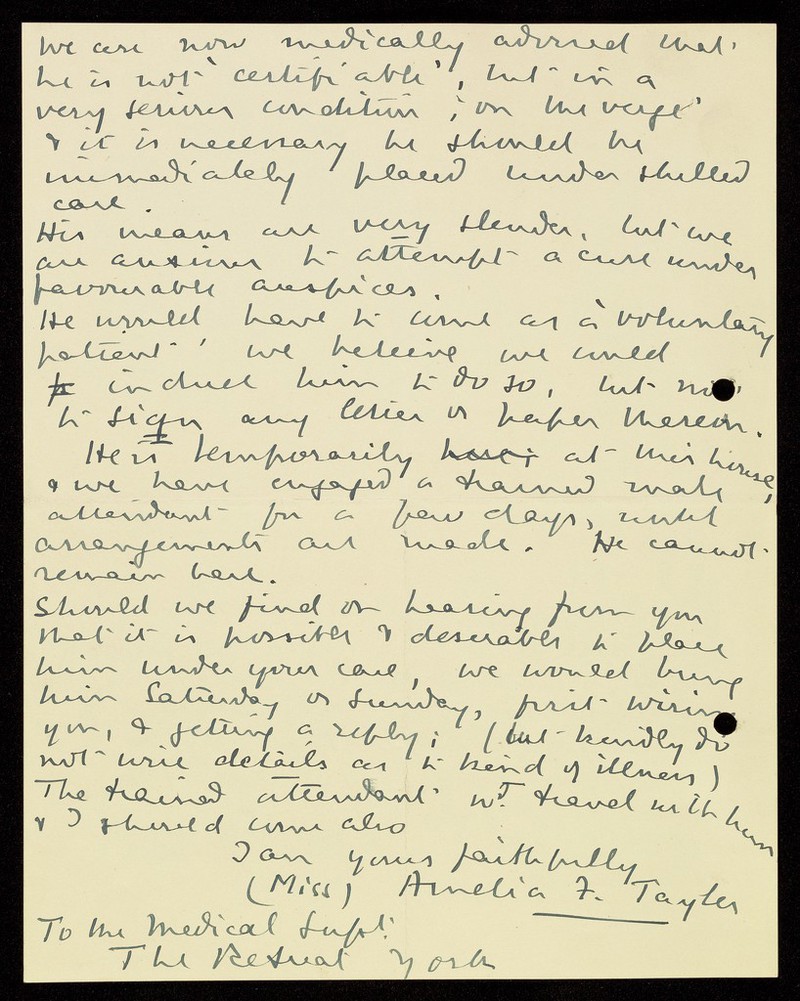 We are now medically advised that
he is not 'certifiable', but in a
very serious condition; 'on the verge'
& it is necessary he should be
immediately placed under skilled
care.
His means are very slender, but we
are anxious to attempt a cure under
favourable auspices.
He would have to come as a 'voluntary
patient', we believe we could
induce him to do so, but not
to sign any letter or paper thereon.
He is temporarily here; at this house,
& we have engaged a trained male
attendant for a few days, until
arrangements are made. He cannot
remain here.
Should we find on hearing from you
that it is possible & desirable to place
him under your care, we would bring
him Saturday or Sunday, first wiring
you, & getting a reply; (but kindly do
not wire details as to kind of illness)
The trained attendant wd. travel with him
& I should come also
I am yours faithfully
(Miss) Amelia F. Tayler
To the Medical Supt.
The Retreat York